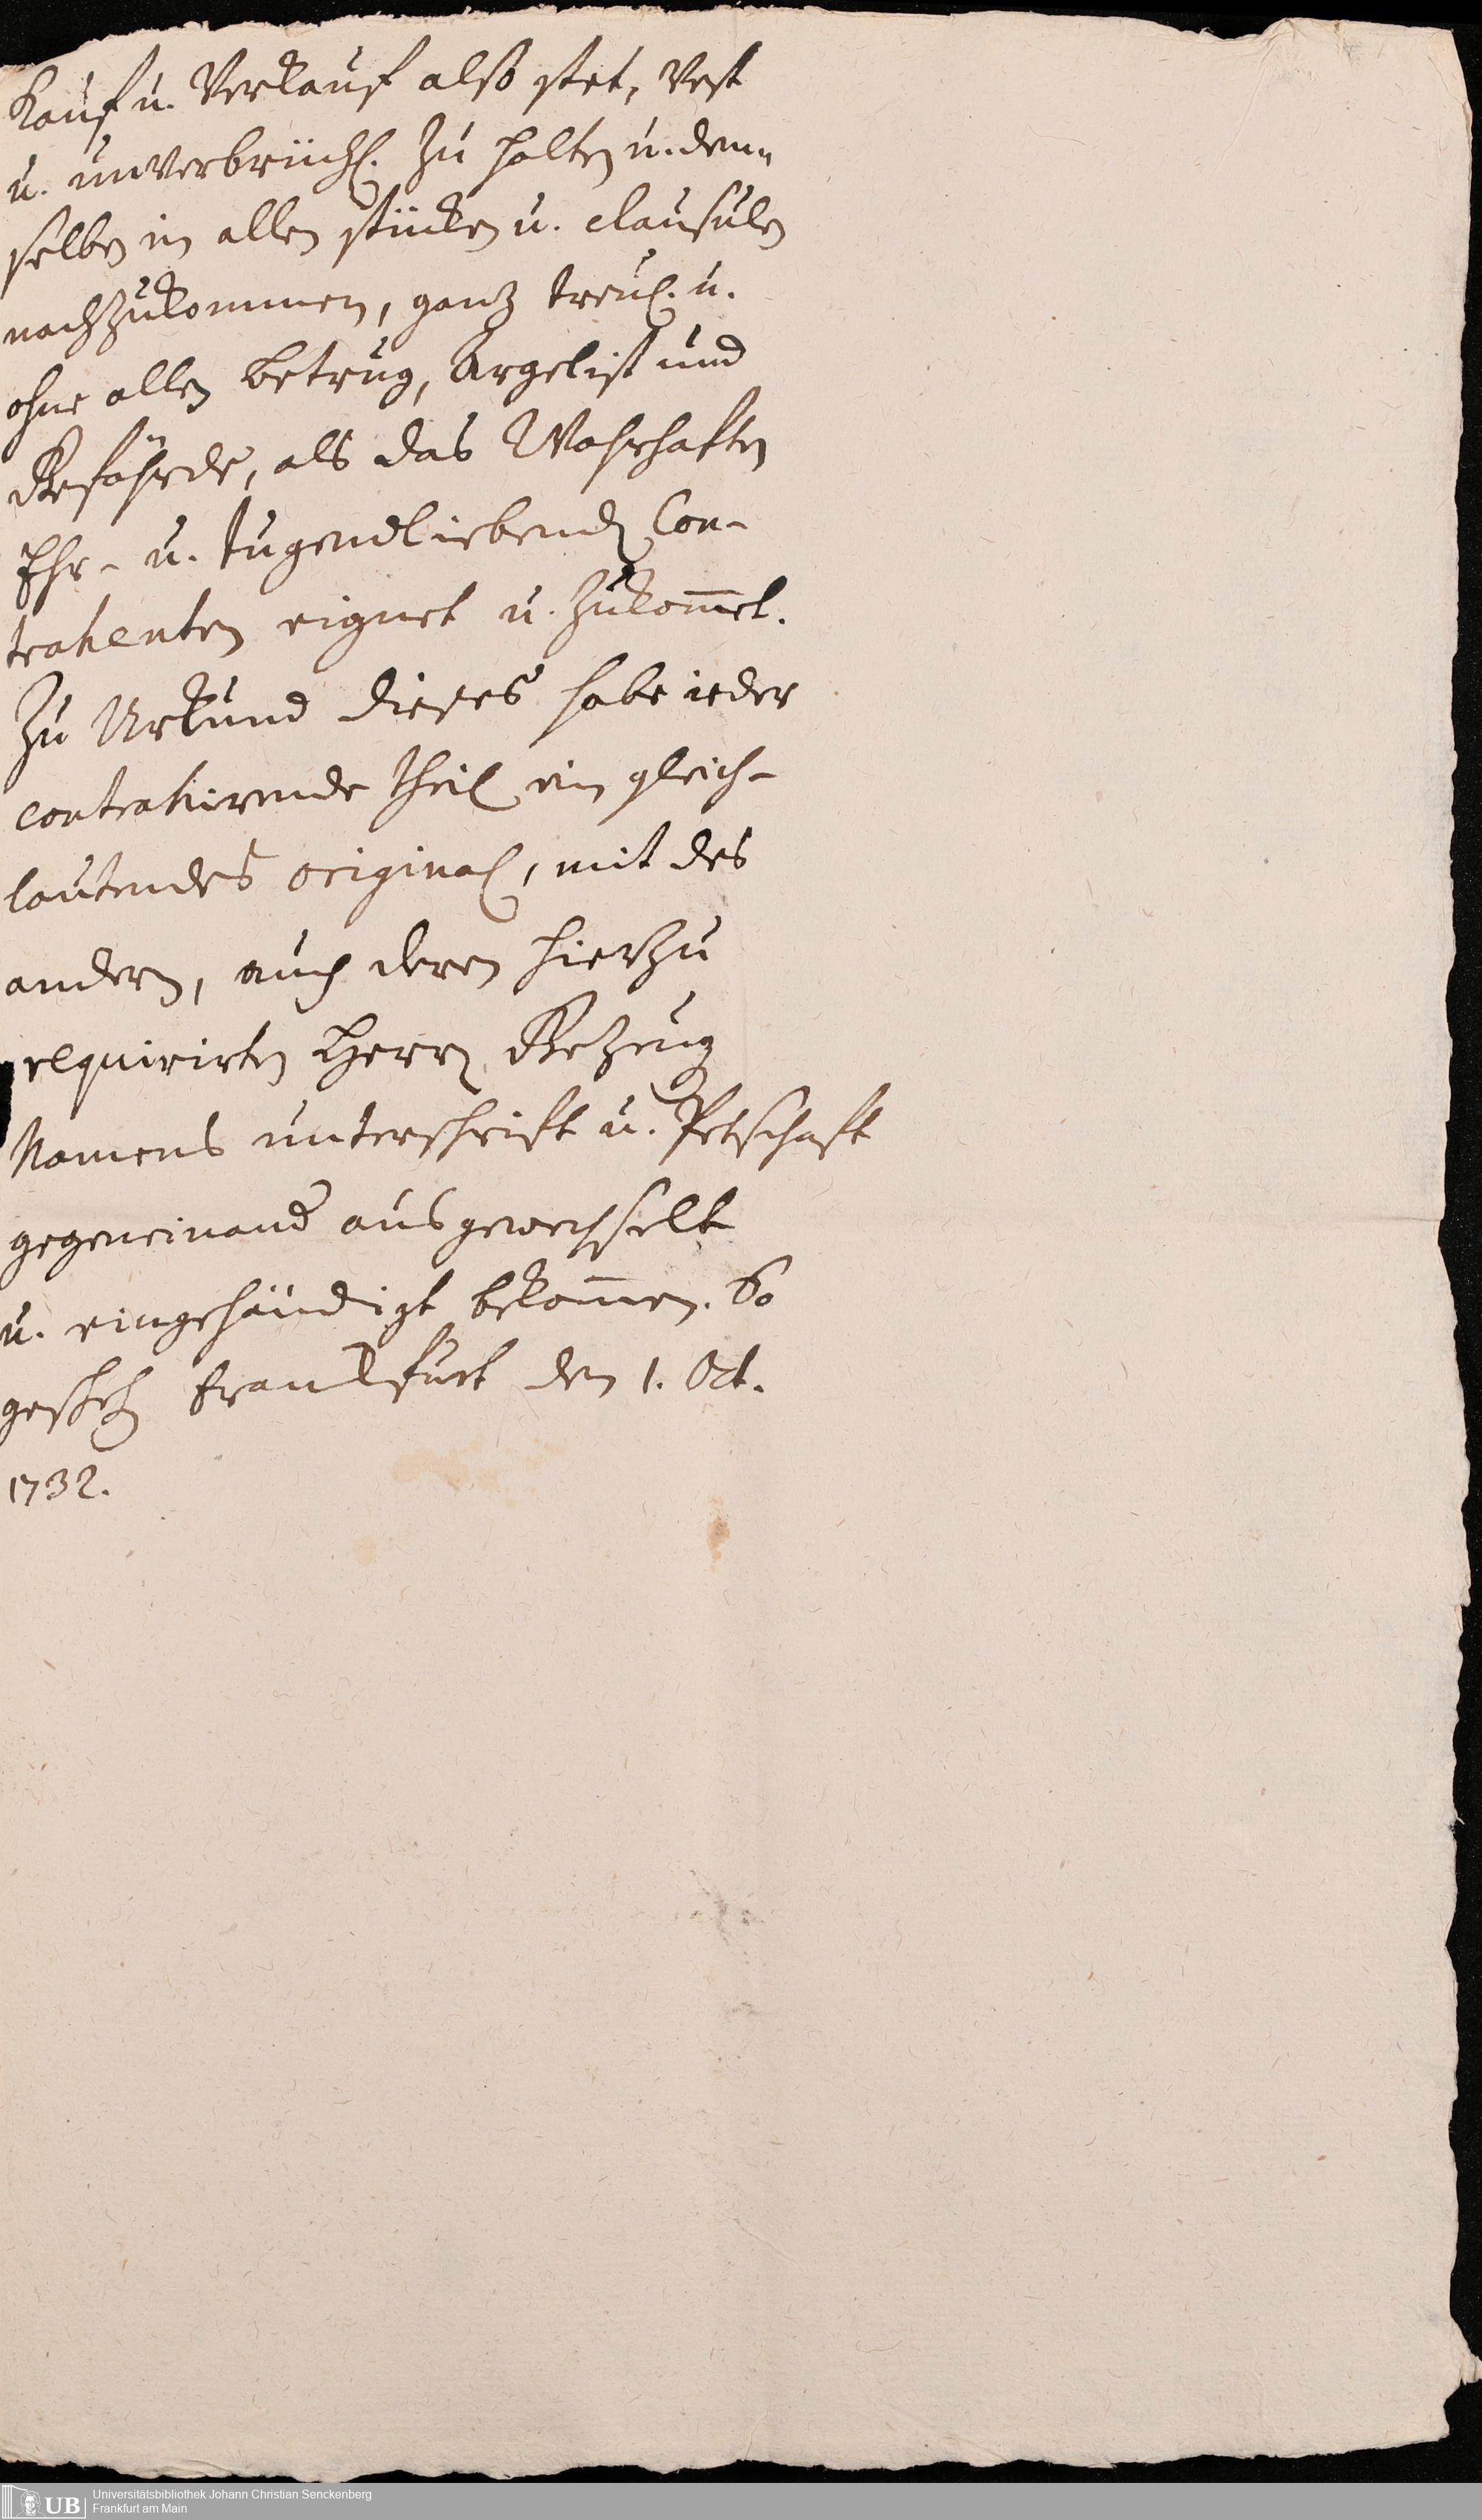 Kauf u. Verkauf alß stet, vest
u. unverbrüchl. zu halten u. dem„
selben in allen stücken u. clausulen
nachzukommen, ganz treul. u.
ohne allen betrug, Argelist und
Gefährde, als das Wahrhaften
Ehr- u. tugendliebend Con-
trahenten eignet u. zukom̅et.
Zu Urkund dieses habe ieder
contrahirende theil ein gleich-
lautendes original, mit des
andern, auch deren hierzu
requirirten Herrn Gezeug
Namens unterschrift u. Petschaft
gegeneinand ausgewechselt
u. eingehändigt bekom̅en. So
gescheh Franckfurt den 1. Oct.
1732.
UB
Universitätsbibliothek Johann Christian Senckenberg
Frankfurt am Main